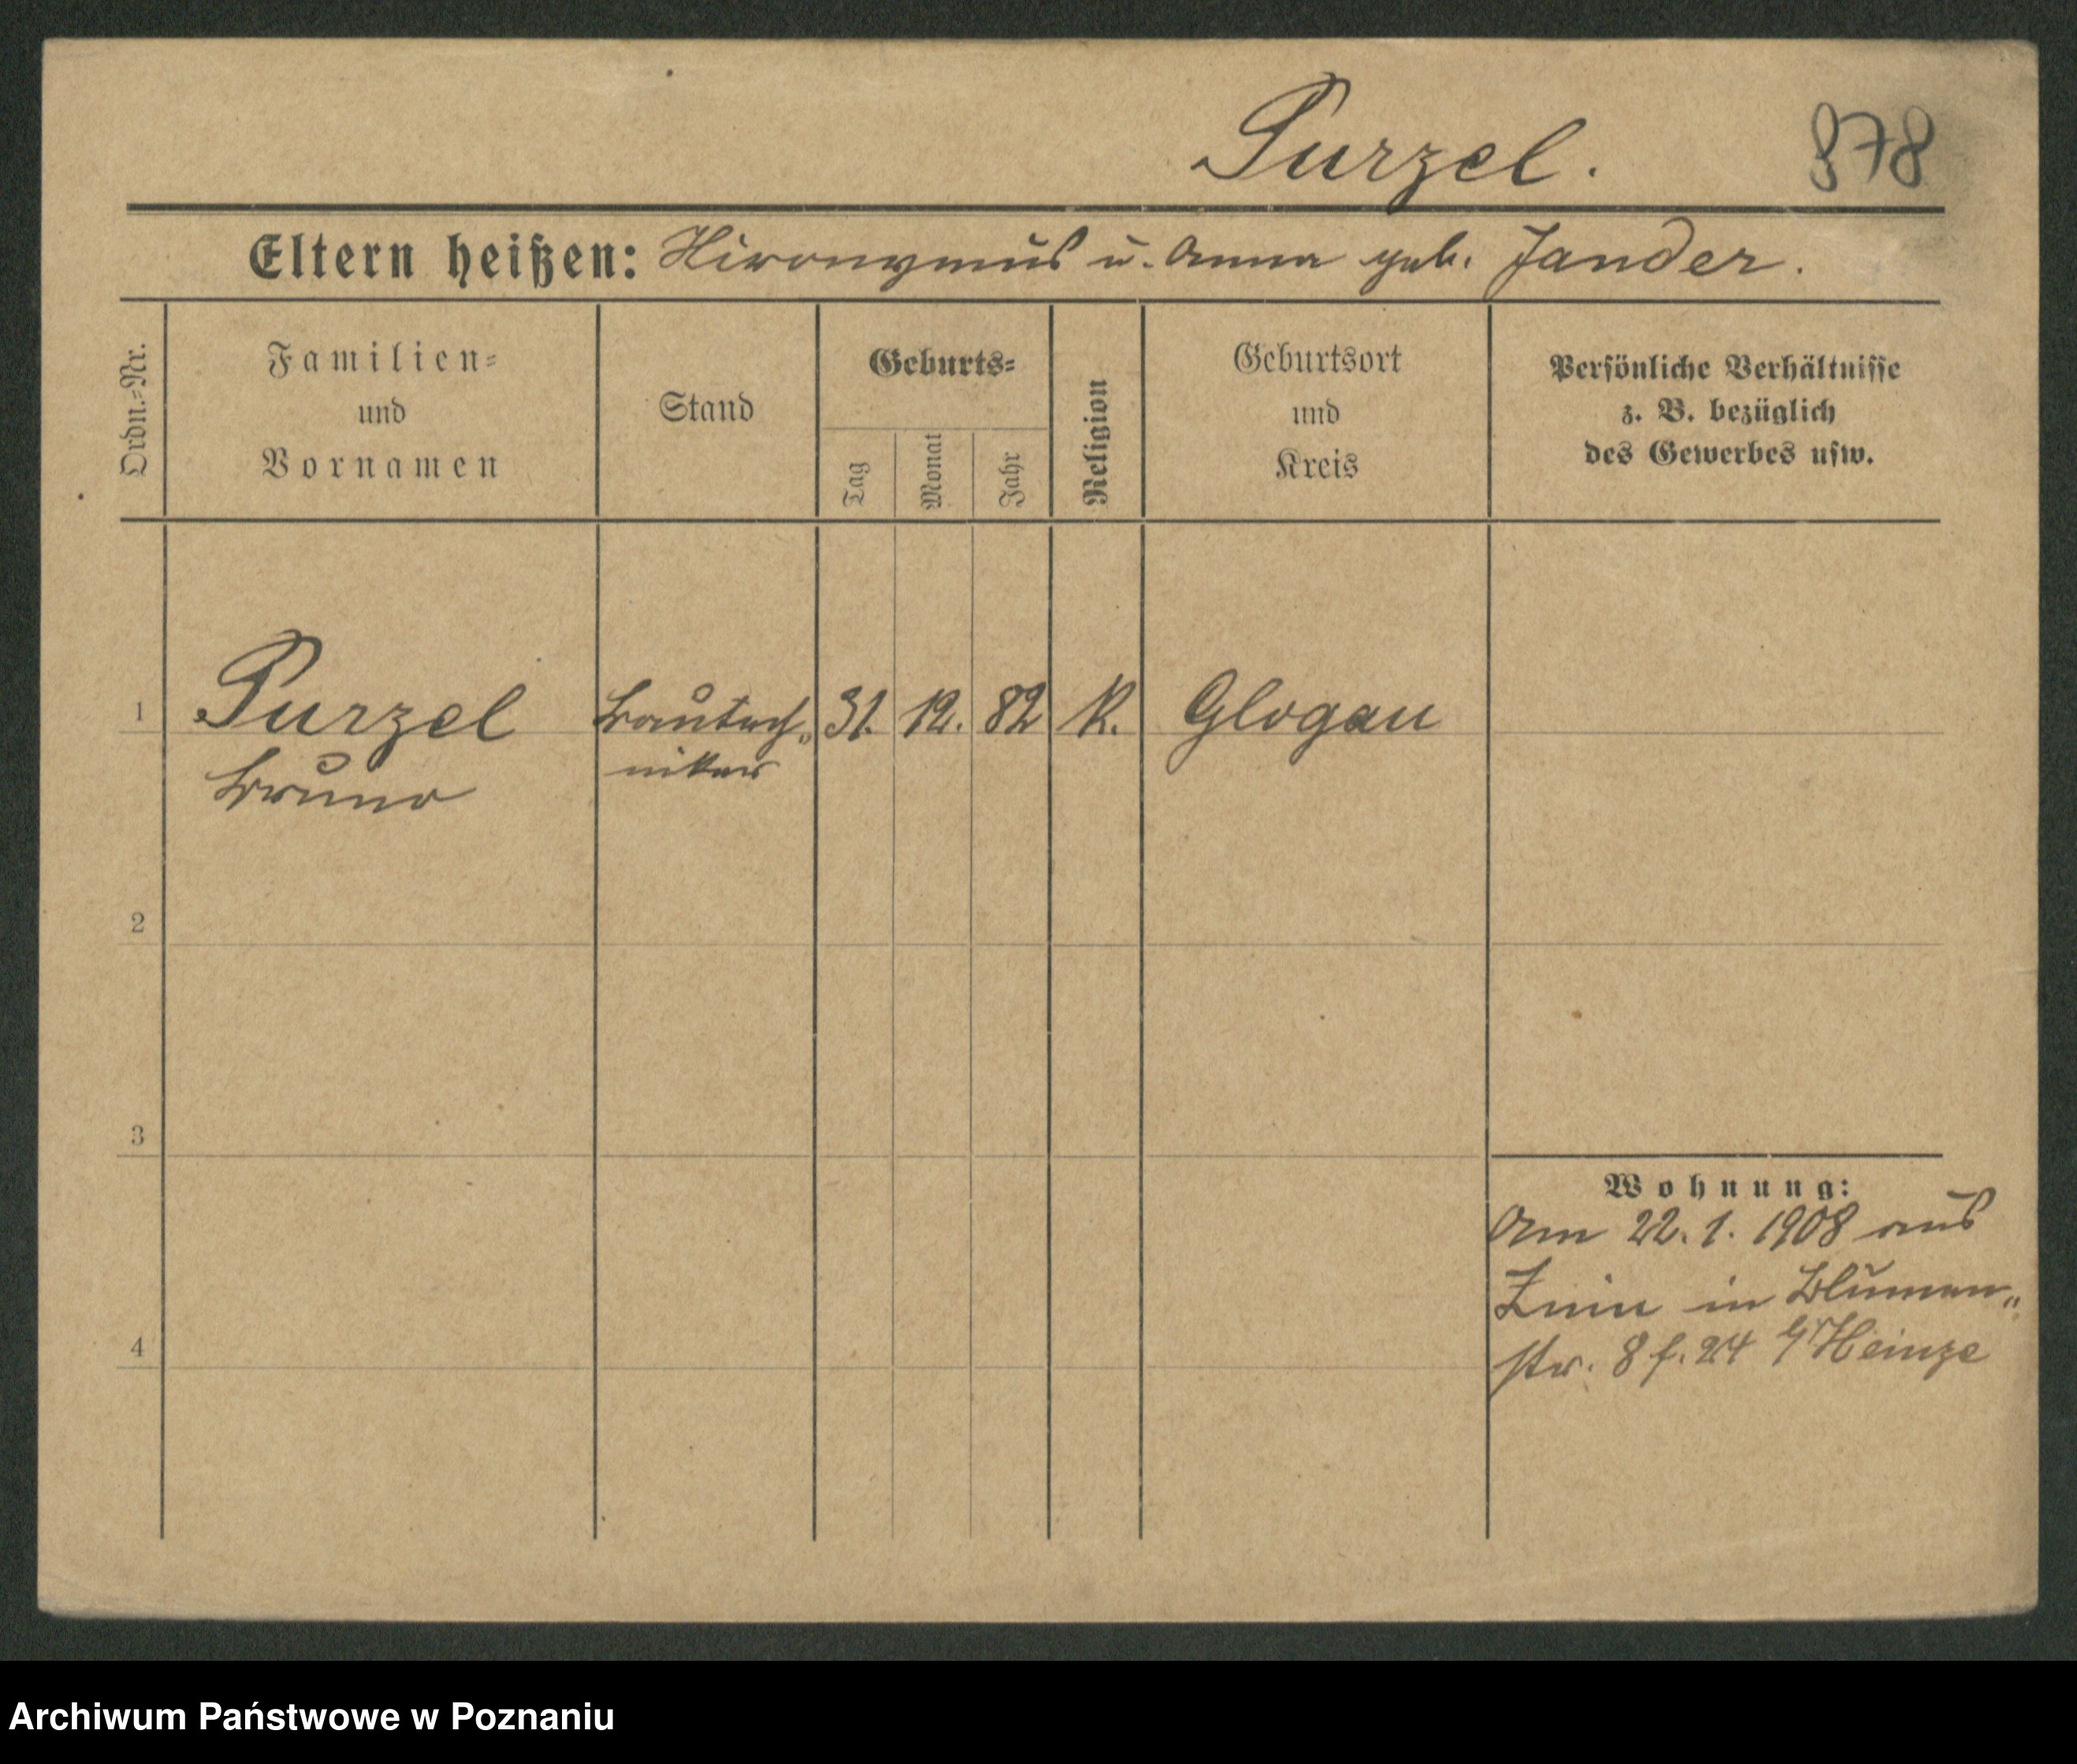 Purzel. 878
Eltern heißen: Hironymus u. Anna geb. Jander.
Ordn.-Nr.
Familien-
und
Vornamen
Stand
Geburts-
Tag
Monat
Jahr
Religion
Geburtsort
und
Kreis
Persönliche Verhältnisse
z. B. bezüglich
des Gewerbes usw.
1 Purzel Bautech- 31. 12. 82 K. Glogau
Bruno niker
2
3
4
Wohnung:
Am 22.1.1908 aus
Znin in Blumen-
str. 8 f. 24 Heinze
Archiwum Państwowe w Poznaniu